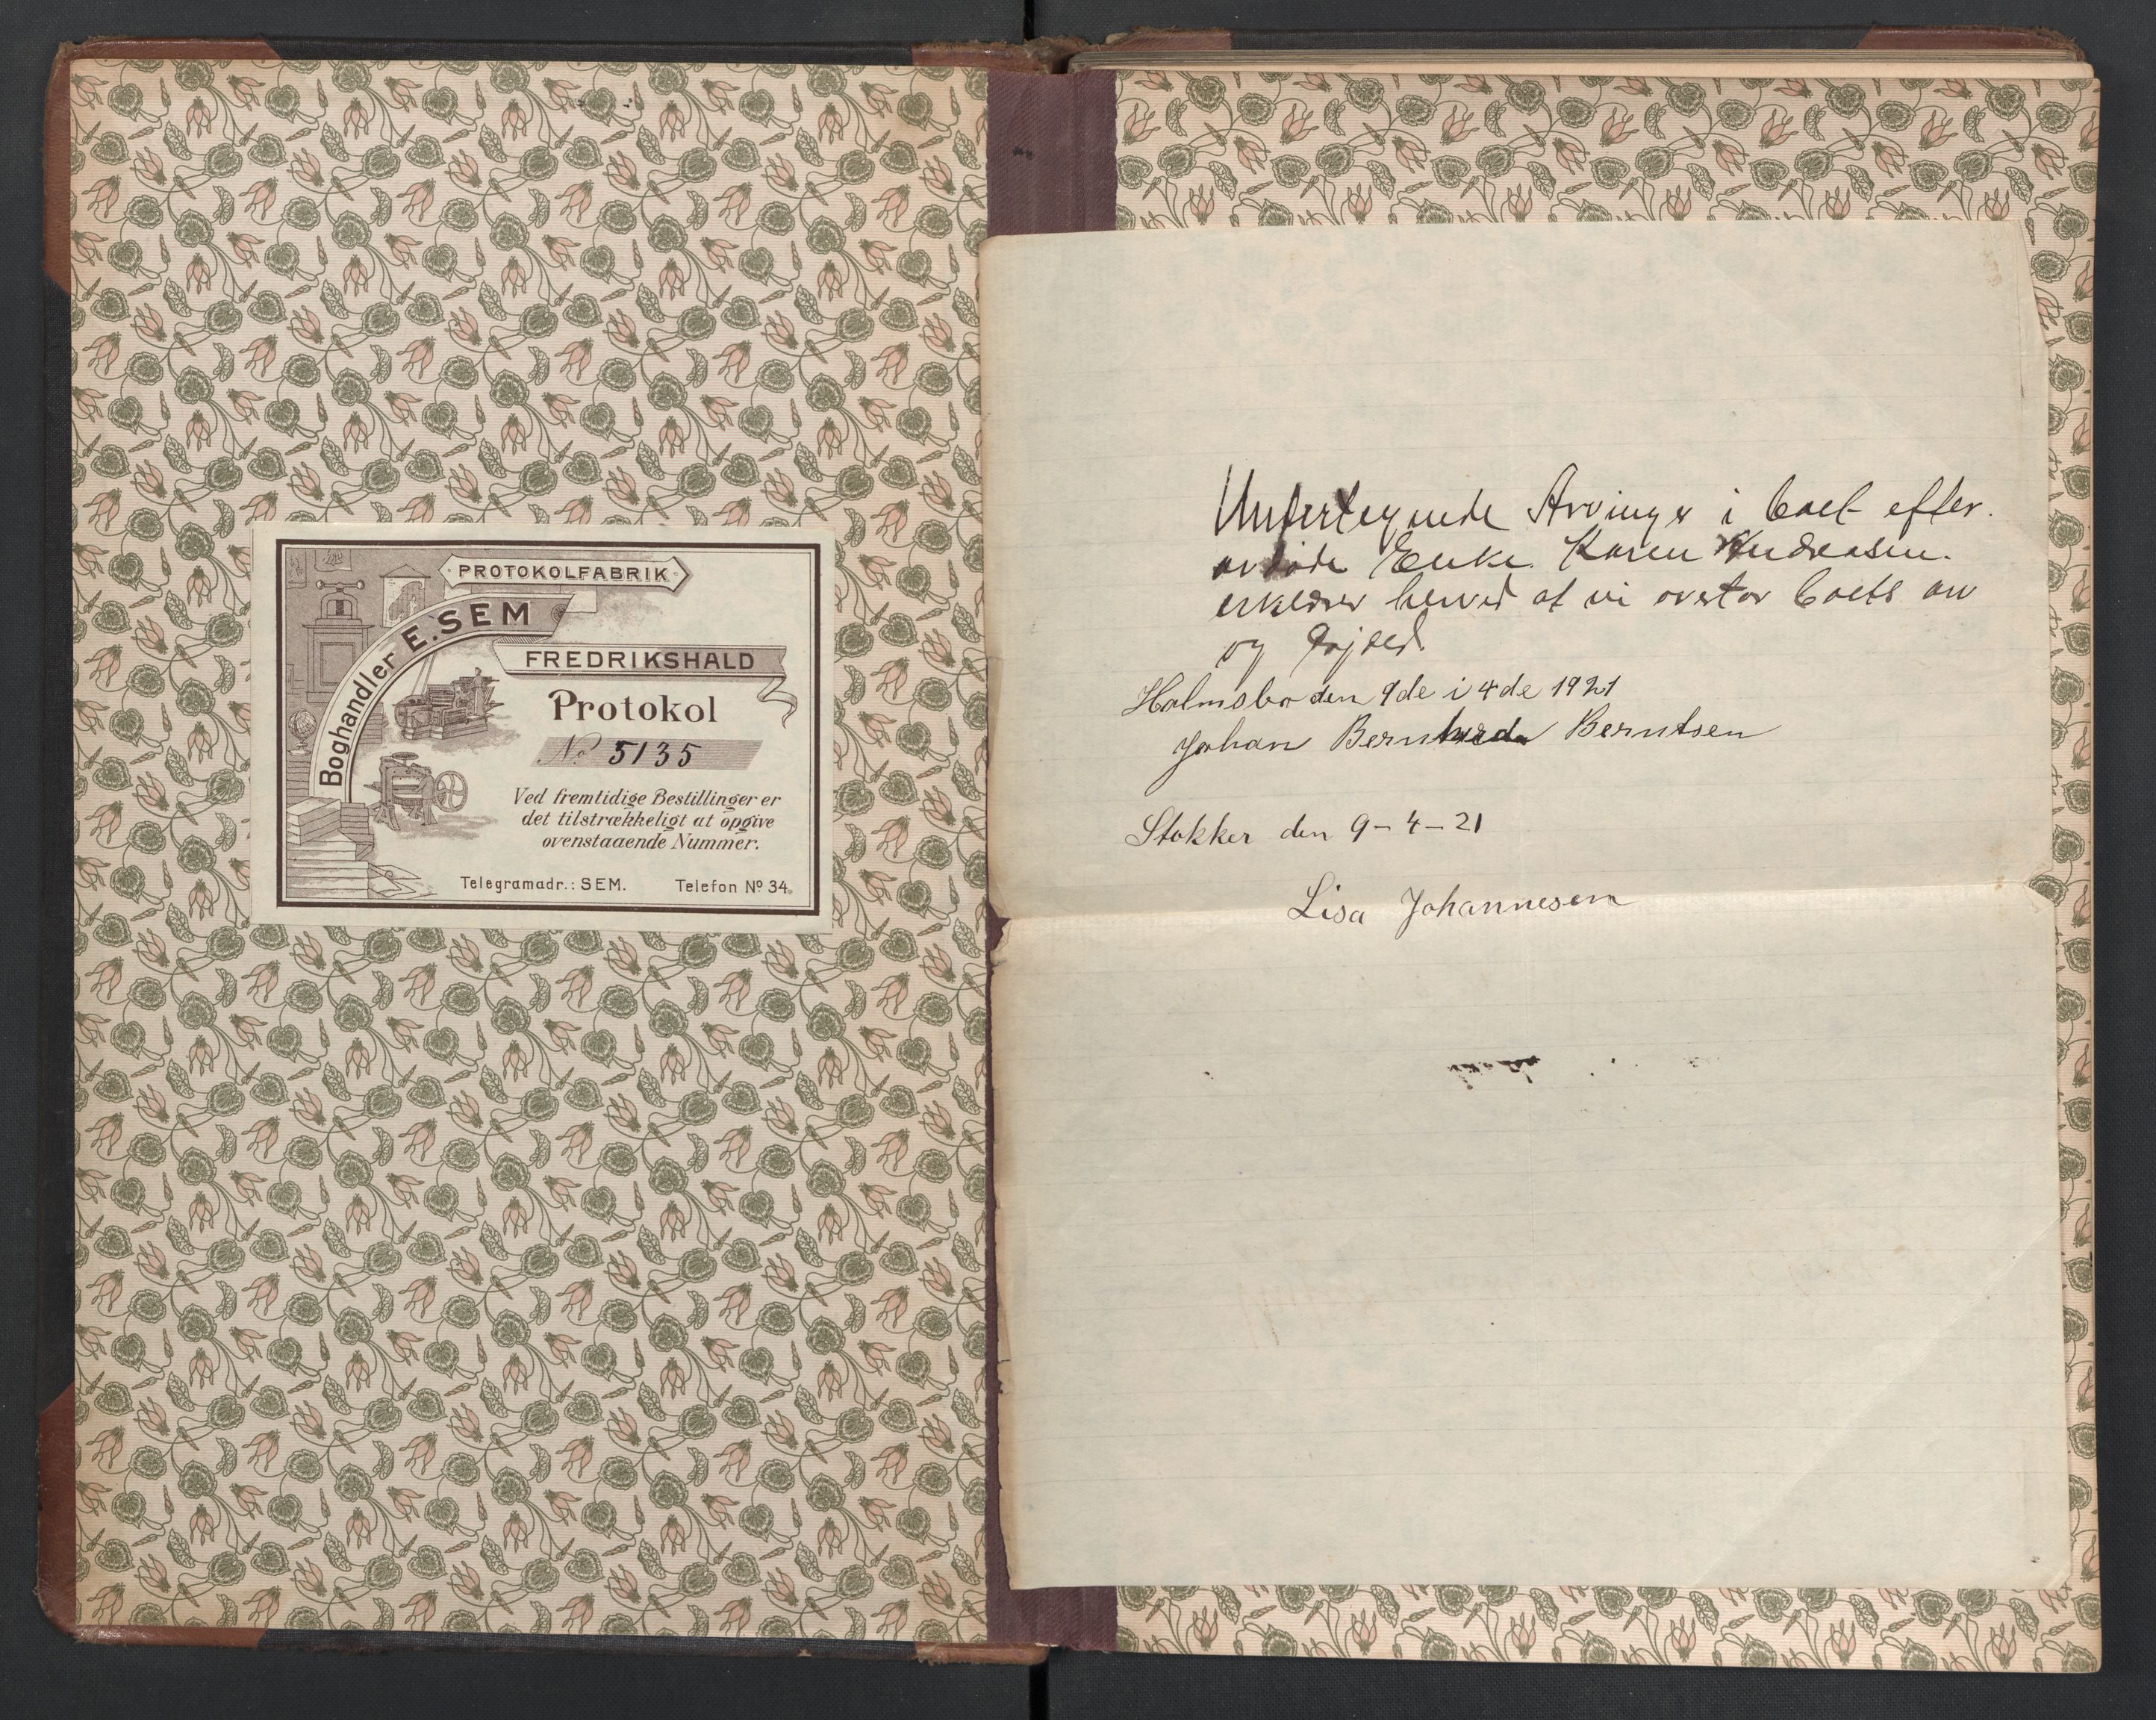 PROTOKOLFABRIK
Boghandler E. SEM
FREDRIKSHALD
Protokol
No 5135
Ved fremtidige Bestillinger er
det tilstrækkeligt at opgive
ovenstaaende Nummer.
Telegramadr.: SEM. Telefon No 34.
Undertegnede Arvinger i boet efter.
avdøde Enke Karen Andreasen.
erklærer herved at vi overtar boets arv
og gjæld.
Holmsbo den 9de i 4de 1921
Johan Bernhard Berntsen
Stokker den 9-4-21
Lisa Johannesen